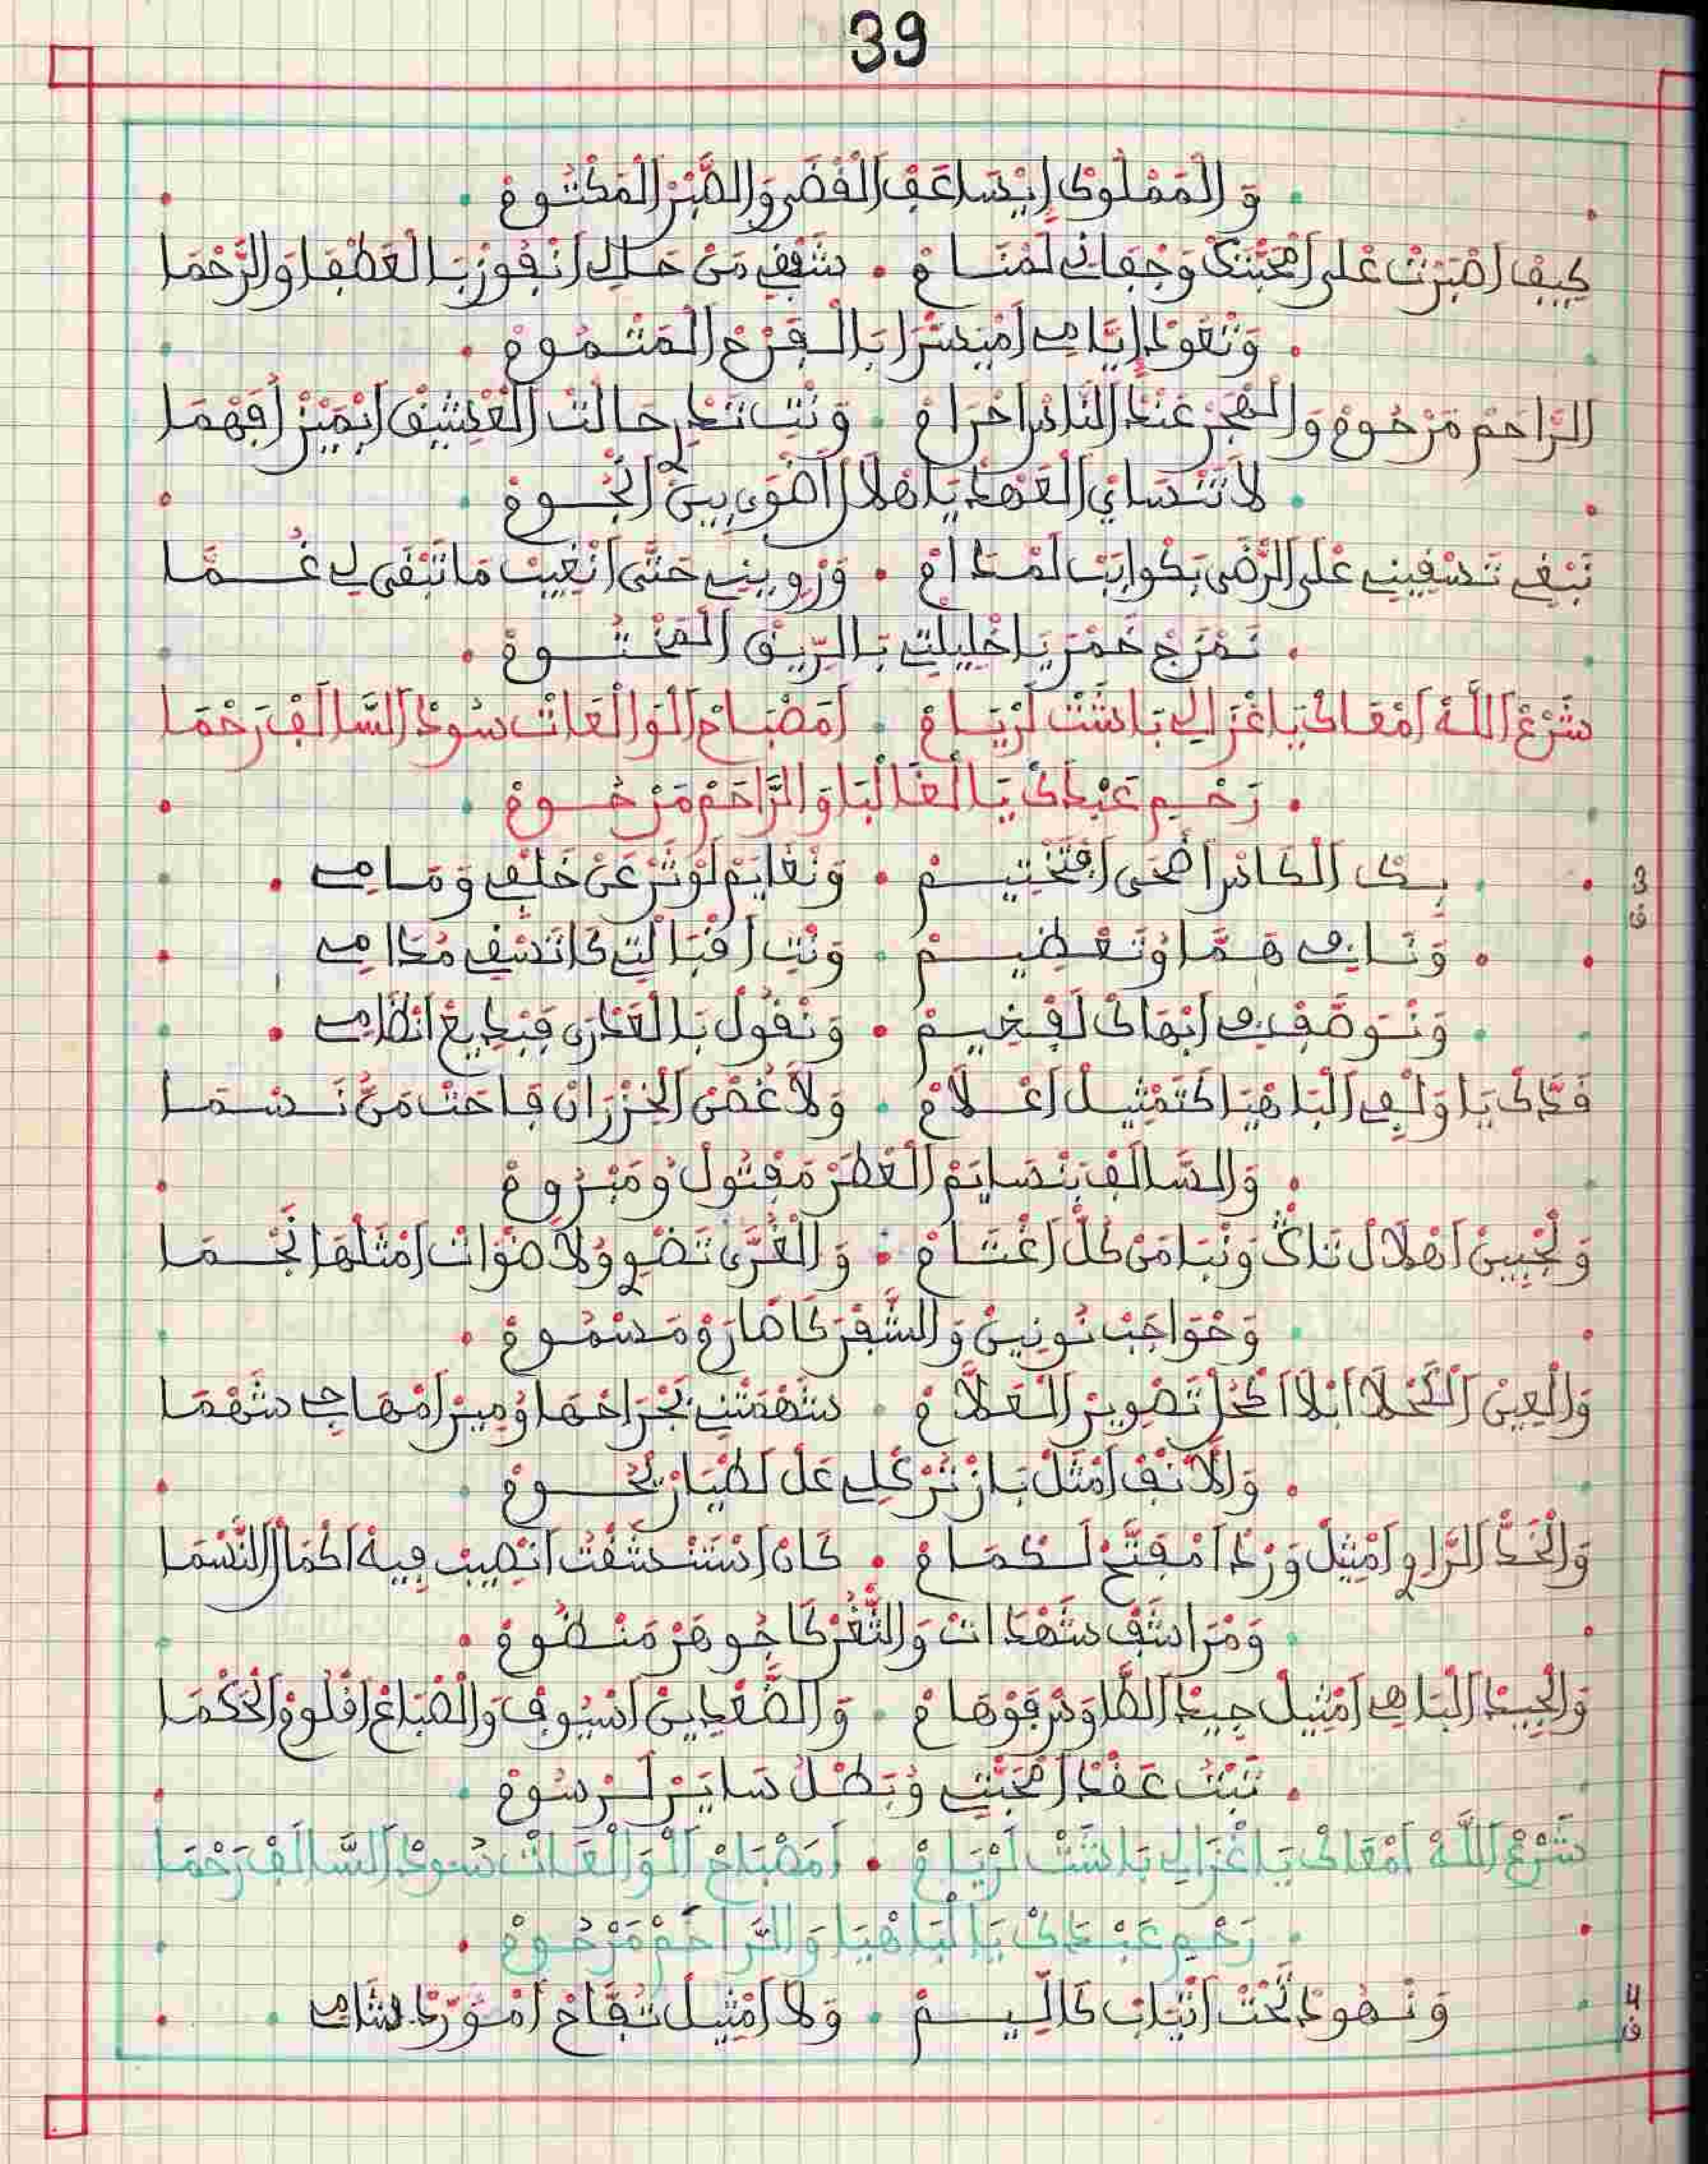 39
وَالْمَمْلُوكْ إِيْسَاعَفْ الْقْضَى وَالصّْبَرْ الْمَكْتُومْ
كِيفْ اصْبَرْتْ عْلَى امْحَبّْتَكْ وَجْفَانِي لَمْنَامْ • شَفْقِي مَنْ حَالِي انْفُوزْ بَالْعَطْفَا وَالرَّحْمَا
وَتْعُودْ إِيَّامِي امْيَسْرَا بَالْفَرْحْ الْمَتْمُومْ
الرَّاحَمْ مَرْحُومْ وَالْهْجَرْ عَنْدْ النَّاسْ احْرَامْ • وَنْتِ تَدْرِ حَالْتْ الْعْشِيقْ ابْمَيْزْ افْهْمَا
لاَ تَنْسَايْ الْعَهْدْ يَا هْلاَلْ اضْوَى بِينْ انْجُومْ
نَبْغِي تَسْقِينِي عْلَى الرّْضَى بَكْوَابْ لَمْدَامْ • وَرْوِينِي حَتَّى انْغِيبْ مَا تَبْقَى لِي غُمَّا
نَمْزَجْ خَمْرْ يَا خْلِيلْتِي بَالرِّيقْ الْمَخْتُومْ
شَرْعْ اللَّهْ امْعَاكْ يَا غْزَالِي بَاشَتْ لَرْيَامْ • امَصْبَاحْ الْوَالْعَاتْ سُودْ السَّالَفْ رَحْمَا
رَحْمِ عَبْدَكْ يَا الْغَالْيَا وَالرَّاحَمْ مَرْحُومْ
3 ق
بِكْ الْكَاسْ اضْحَى افْتَخْتِيمْ • وَنْغَايَمْ لَوْتَرْ عَنْ خَلْفِي وَمَامِي
وَنَايَا فِي هَمَّا وُتَعْظِيمْ • وَنْتِ اقْبَالْتِي كَاتَسْقِي مُدَامِي
وَنْوَصَّفْ فِي ابْهَاكْ لَفْخِيمْ • وَنْقُولْ بَالْعَدْرَى فَبْدِيعْ انْظَامِي
قَدَّكْ يَا وَلْفِي الْبَاهْيَا كَتَمْثِيلْ اعْلاَمْ • وَلاَ غُصْنْ الْخِزْرَانْ فَاحَتْ مَنُّ نَسْمَا
وَالسَّالَفْ بَنْسَايَمْ الْعْطَرْ مَفْتُولْ وُمَبْرُومْ
وَلْجْبِينْ اهْلاَلْ تَاكْ وَنْبَا مَنْ كُلّْ اغْتَامْ • وَالْغُرَّى تَضْوِ وُلاَ ضْوَاتْ امْثَلْهَا نَجْمَا
وَحْوَاجَبْ نُونِينْ وَالشّْفَرْ كَاصَارَمْ مَسْمُومْ
وَالْعِينْ الْكَحْلاَ ابْلاَ اكْحُلْ تَصْوِيرْ الْعَلاَّمْ • سَهْمَتْنِي بَجْرَاحْهَا وُمِيرْ امْهَاجِي سَهْمَا
وَالاَنْفْ امْثَلْ بَازْ تُرْكْلِي عَلْ لَطْيَارْ يْحُومْ
وَالْخَدّْ الرَّاوِي امْثِيلْ وَرْدْ امْفَتَّحْ لَكْمَامْ • كَانْ اسْتَنْشَقْتْ انْصِيبْ فِيهْ اكْمَالْ النّْسْمَا
وَمْرَاشَفْ شَهْدَاتْ وَالثّْغَرْ كَاجُوهَرْ مَنْظُومْ
وَالْجِيدْ الْبَاهِي امْثِيلْ جِيدْ الطَّاوَسْ فَوْهَامْ • وَالصَّعْدِينْ اسْيُوفْ وَالْصْبَاعْ اقْلُومْ الْحَكْمَا
تَبْتْ عَقْدْ امْحَبّْتِي وُبَطْلْ سَايَرْ لَرْسُومْ
شَرْعْ اللَّهْ امْعَاكْ يَا غْزَالِي بَاشَتْ لَرْيَامْ • امَصْبَاحْ الْوَالْعَاتْ سُودْ السَّالَفْ رَحْمَا
رَحْمِ عَبْدَكْ يَا الْبَاهْيَا وَالرَّاحَمْ مَرْحُومْ
4 ق
وَنْهُودْ تَحْتْ اتْيَابْ كَالِّيمْ • وَلاَ امْثِيلْ تُفَّاحْ امْوَرَّدْ شَامِي